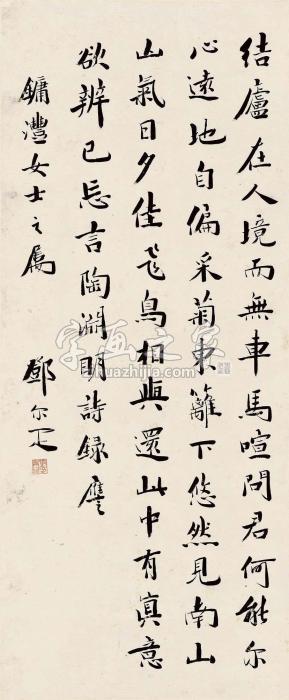 結廬在人境而無車馬喧問君何能尔
心遠地自偏采菊東籬下悠然見南山
山氣日夕佳飞鳥相與還此中有真意
欲辨已忘言陶淵明詩録應
鏞澧女士之屬
鄧尔疋
字画之家
huazhijia.com